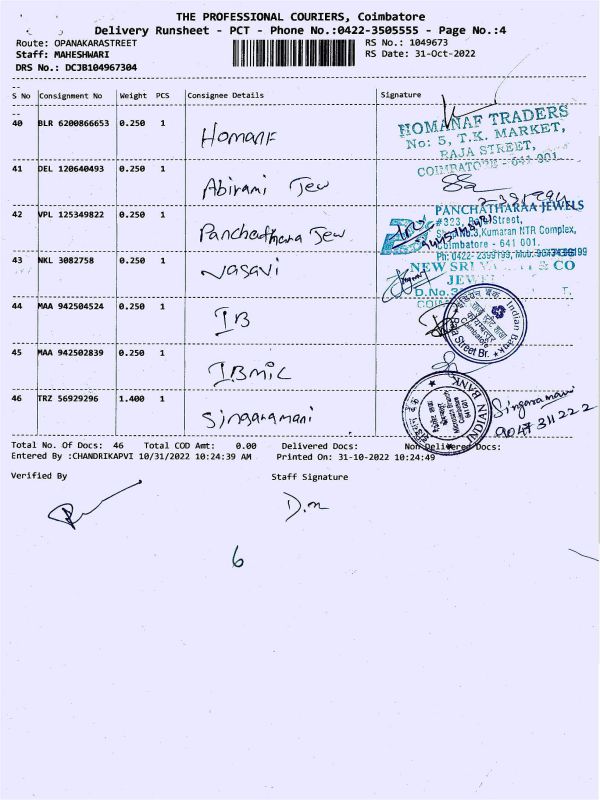 THE PROFESSIONAL COURIERS, Coimbatore
Delivery Runsheet - PCT - Phone No.:0422-3505555 - Page No.:4
Route: OPANAKARASTREET RS No.: 1049673
Staff: MAHESHWARI RS Date: 31-Oct-2022
DRS No.: DCJB104967304
S No Consignment No Weight PCS Consignee Details Signature
40 BLR 6200866653 0.250 1 Homanf
HOMANAF TRADERS
No: 5, T.K. MARKET,
RAJA STREET,
COIMBATORE - 641 001.
41 DEL 120640493 0.250 1 Abirami Jew
42 VPL 125349822 0.250 1 Panchadhara Jew
PANCHATHARAA JEWELS
#323, Raja Street,
Kumaran NTR Complex,
Coimbatore - 641 001.
Ph: 0422- 2399199, Mob:
43 NKL 3082758 0.250 1 Vasavi
NEW SRI & CO
JEWEL
D.No.3
44 MAA 942504524 0.250 1 IB
Indian Bank
Raja Street Br.
Coimbatore
45 MAA 942502839 0.250 1 IBMIC
INDIAN BANK
46 TRZ 56929296 1.400 1 Singaramani
Singaramani
9047311222
Total No. Of Docs: 46 Total COD Amt: 0.00 Delivered Docs: Non Delivered Docs:
Entered By :CHANDRIKAPVI 10/31/2022 10:24:39 AM Printed On: 31-10-2022 10:24:49
Verified By Staff Signature
D.m
6